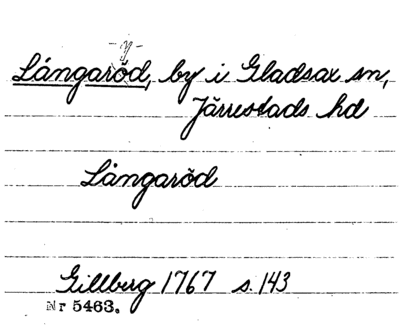 -y-
Långaröd, by i Gladsax sn,
Järrestads hd
Långaröd
Gillberg 1767 s. 143
Nr 5463.